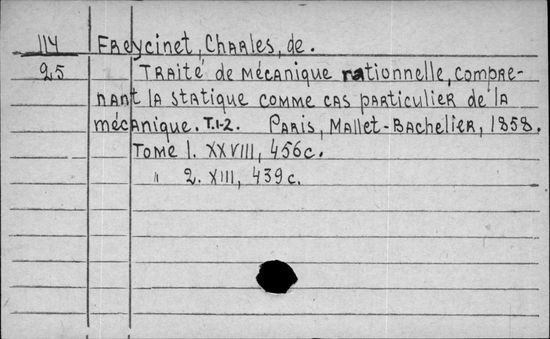 114 Freycinet, Charles, de.
25 Traité de mécanique rationnelle, compre-
nant la statique comme cas particulier de la
mécanique. T.1-2. Paris, Mallet-Bachelier, 1858.
Tome 1. XXVIII, 456c.
" 2. XIII, 439c.